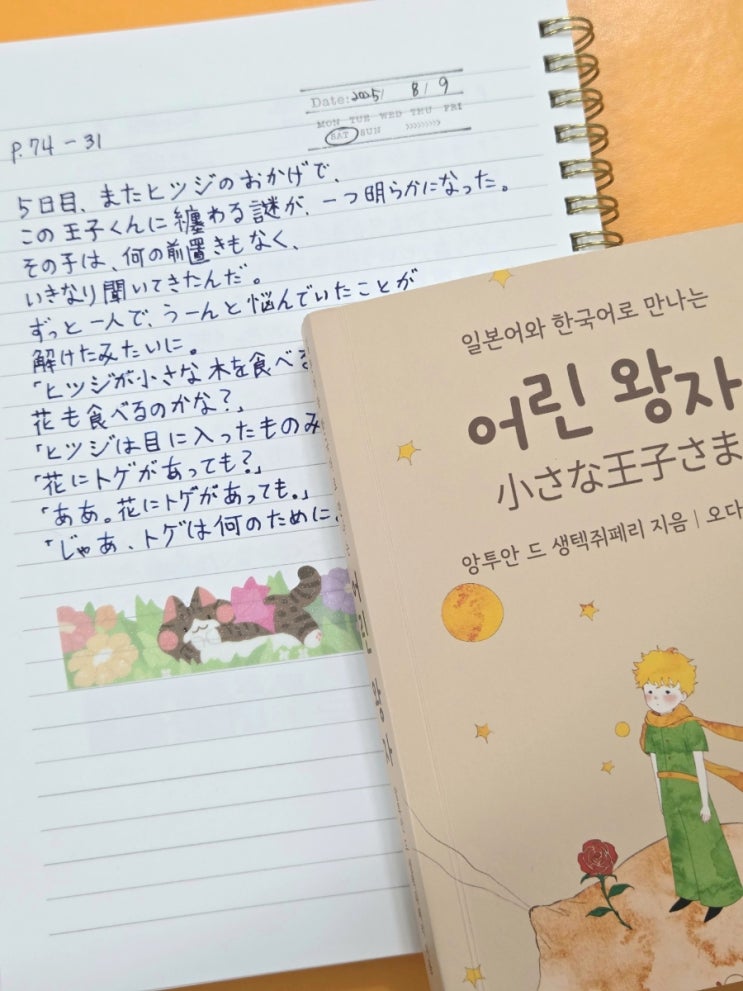 Date: 2025/ 8/9
MON TUE WED THU FRI
SAT SUN
P.74-31
5日目、またヒツジのおかげで、
この王子くんに纏わる謎が、一つ明らかになった。
その子は、何の前置きもなく、
いきなり聞いてきたんだ。
ずっと一人で、うーんと悩んでいたことが
解けたみたいに。
「ヒツジが小さな木を食べる
花も食べるのかな?」
「ヒツジは目に入ったものみ
「花にトゲがあっても?」
「ああ。花にトゲがあっても。」
「じゃあ、トゲは何のために、
일본어와 한국어로 만나는
어린 왕자
小さな王子さま
앙투안 드 생텍쥐페리 지음 | 오다
어린 왕자